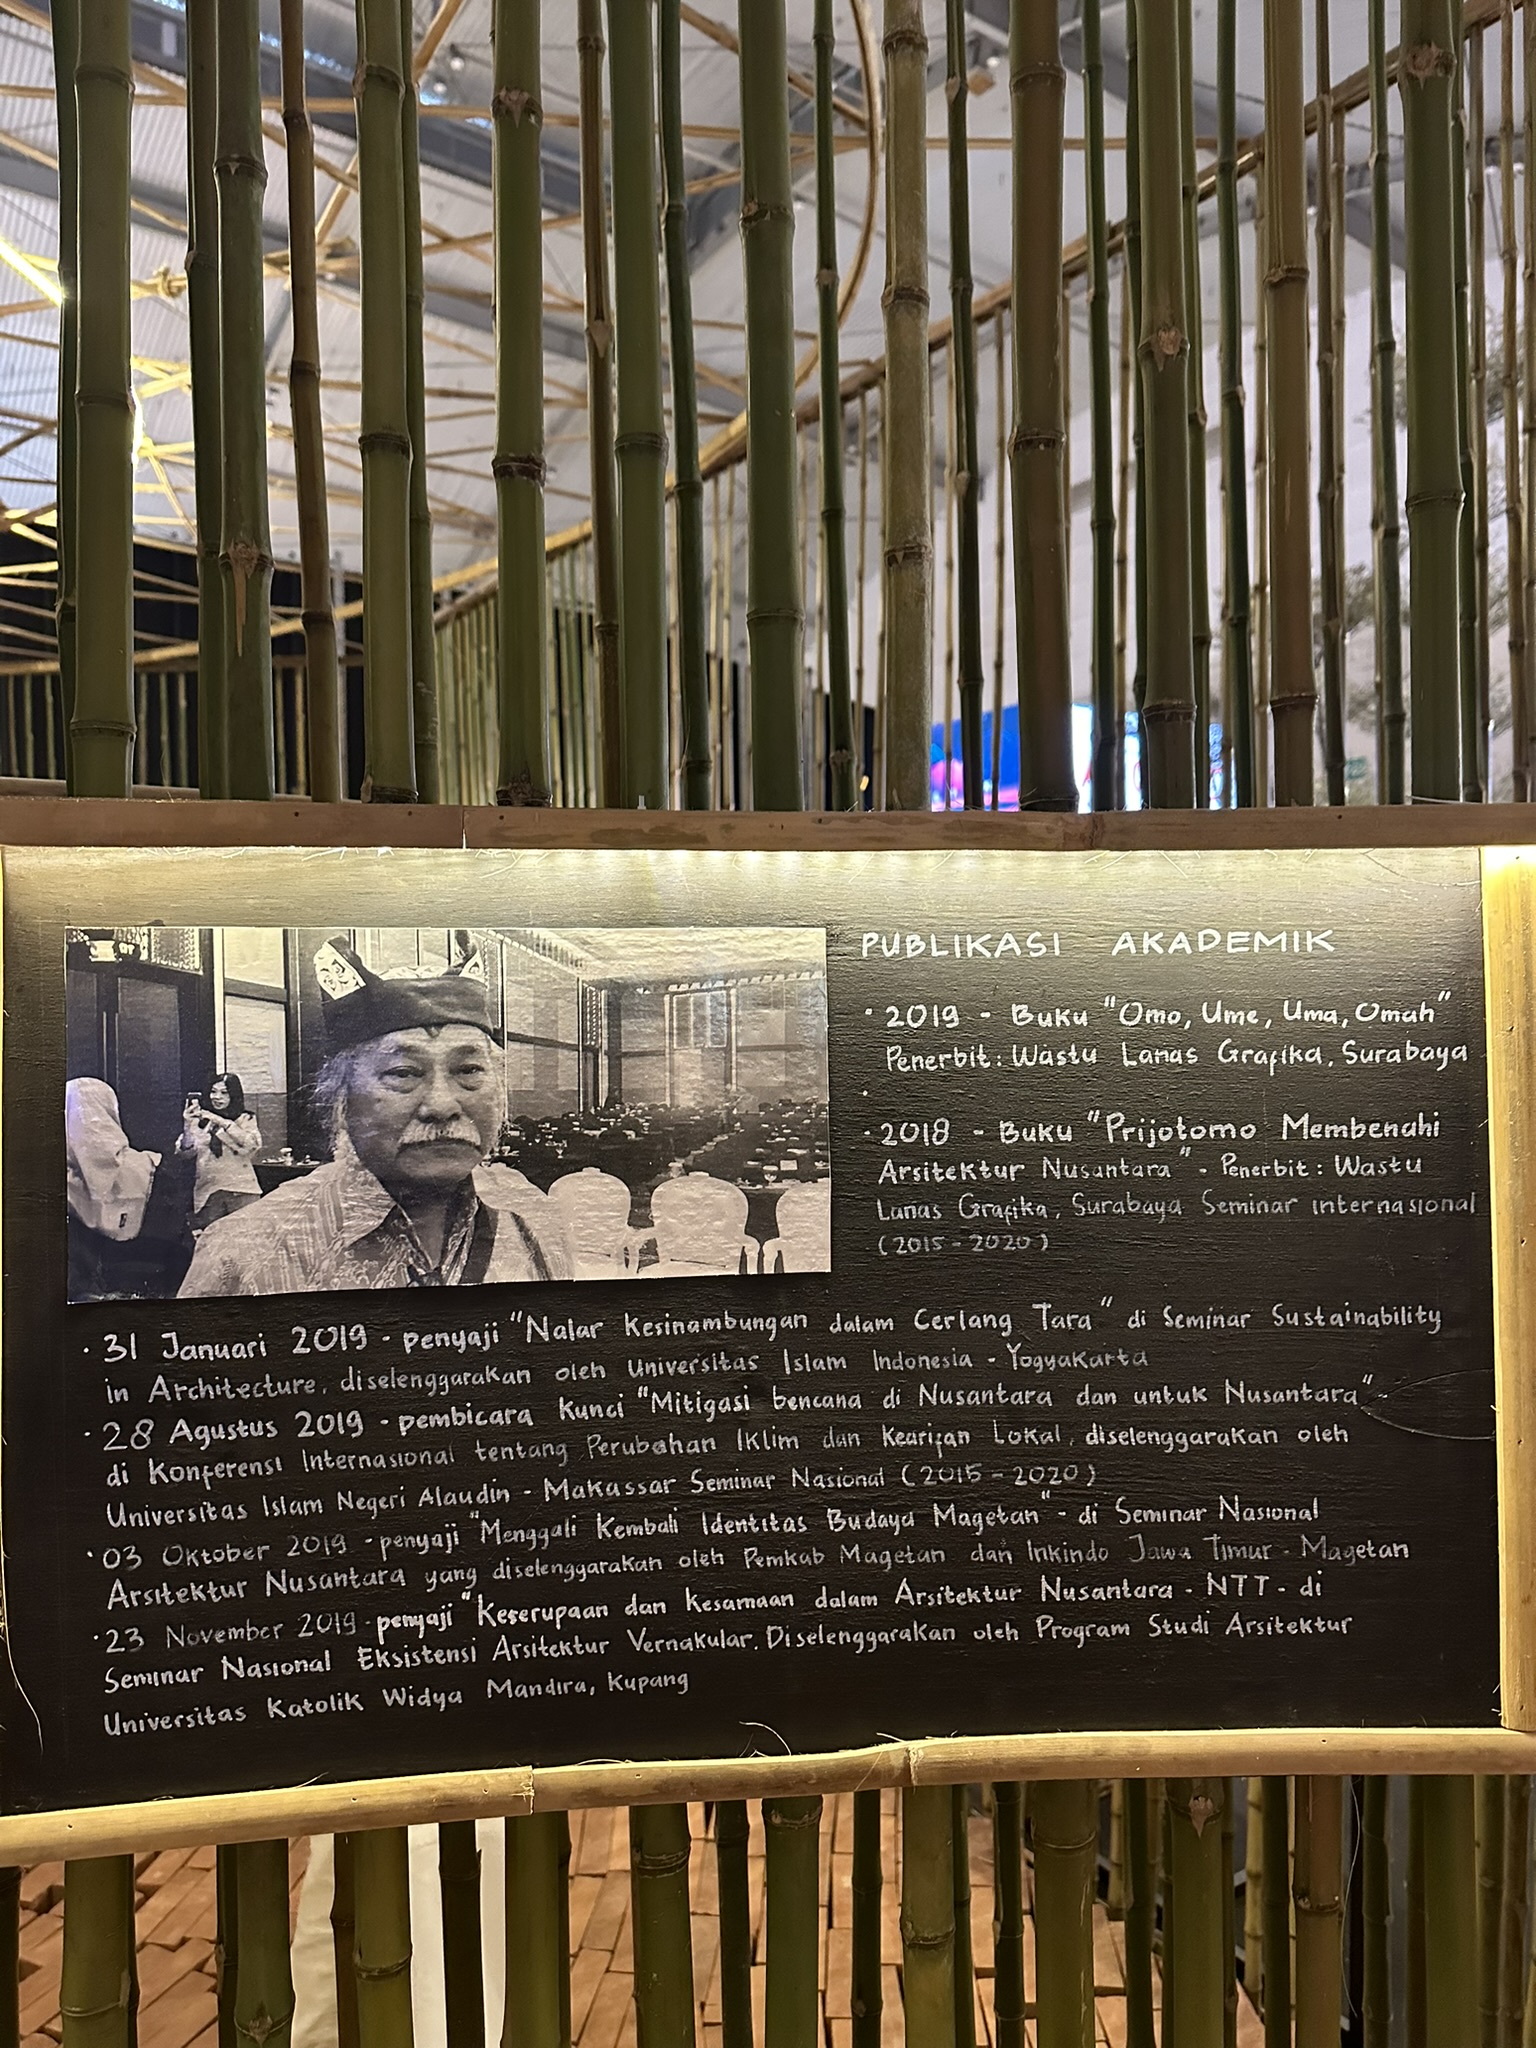 PUBLIKASI AKADEMIK
• 2019 - Buku "Omo, Ume, Uma, Omah"
Penerbit: Wastu Lanas Grafika, Surabaya
•
• 2018 - Buku "Prijotomo Membenahi
Arsitektur Nusantara" - Penerbit: Wastu
Lanas Grafika, Surabaya Seminar internasional
(2015 - 2020)
• 31 Januari 2019 - penyaji "Nalar Kesinambungan dalam Cerlang Tara" di Seminar Sustainability
in Architecture, diselenggarakan oleh Universitas Islam Indonesia - Yogyakarta
• 28 Agustus 2019 - pembicara Kunci "Mitigasi bencana di Nusantara dan untuk Nusantara" -
di Konferensi Internasional tentang Perubahan Iklim dan Kearifan Lokal, diselenggarakan oleh
Universitas Islam Negeri Alaudin - Makassar Seminar Nasional (2015 - 2020)
• 03 Oktober 2019 - penyaji "Menggali Kembali Identitas Budaya Magetan" - di Seminar Nasional
Arsitektur Nusantara yang diselenggarakan oleh Pemkab Magetan dan Inkindo Jawa Timur - Magetan
• 23 November 2019 - penyaji "Keserupaan dan Kesamaan dalam Arsitektur Nusantara - NTT - di
Seminar Nasional Eksistensi Arsitektur Vernakular. Diselenggarakan oleh Program Studi Arsitektur
Universitas Katolik Widya Mandira, Kupang